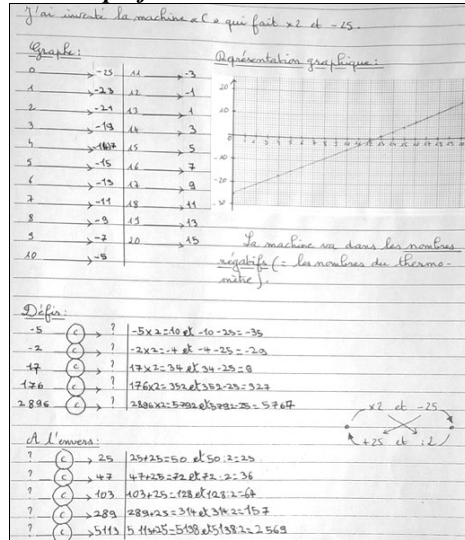 J'ai inventé la machine « C » qui fait ×2 et -25.
Graphe :
Représentation graphique :
0 → -25 | 11 → -3
1 → -23 | 12 → -1
2 → -21 | 13 → 1
3 → -19 | 14 → 3
4 → -17 | 15 → 5
5 → -15 | 16 → 7
6 → -13 | 17 → 9
7 → -11 | 18 → 11
8 → -9 | 19 → 13
9 → -7 | 20 → 15
10 → -5
20
10
0
-10
-20
-30
La machine va dans les nombres
négatifs (= les nombres du thermo-
mètre).
Défis :
-5 C → ? | -5×2=10 et -10-25=-35
-2 C → ? | -2×2=-4 et -4-25=-29
17 C → ? | 17×2=34 et 34-25=9
176 C → ? | 176×2=352 et 352-25=327
2896 C → ? | 2896×2=5792 et 5792-25=5767
×2 et -25
+25 et :2
A l'envers :
? C → 25 | 25+25=50 et 50:2=25
? C → 47 | 47+25=72 et 72:2=36
? C → 103 | 103+25=128 et 128:2=67
? C → 289 | 289+25=314 et 314:2=157
? C → 5113 | 5113+25=5138 et 5138:2=2569